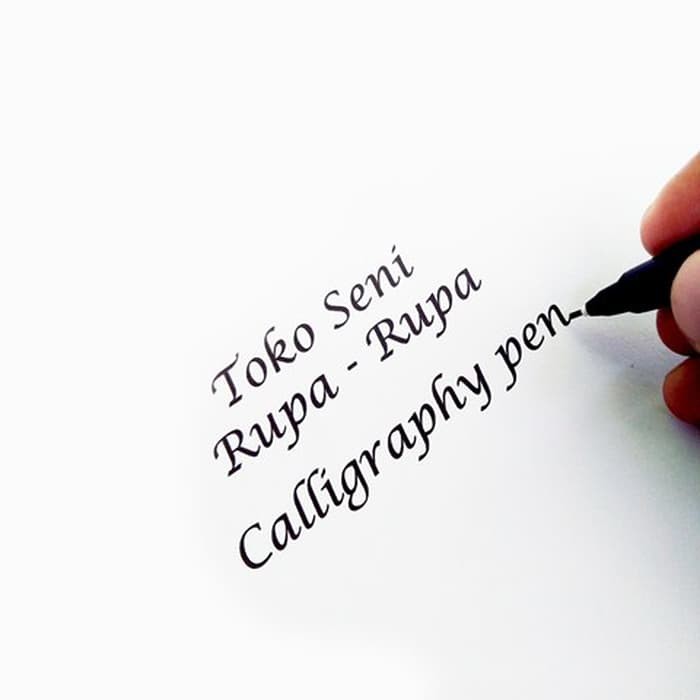 Toko Seni
Rupa - Rupa
Calligraphy pen